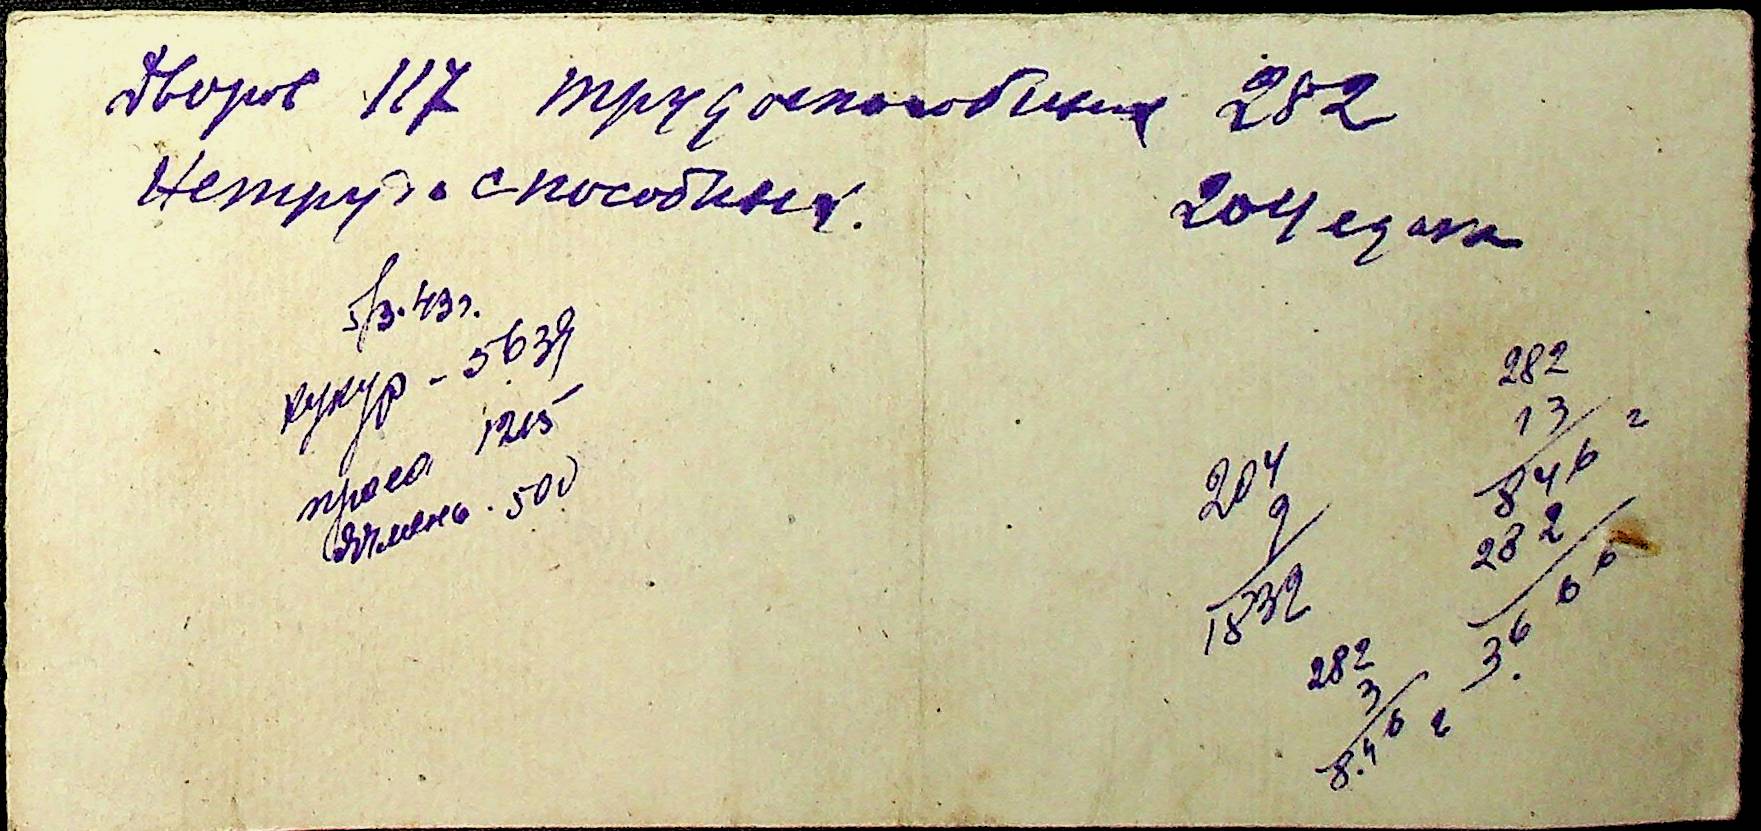 Дворов 117 трудоспособных 282
Нетрудоспособных. 204 едока
5/3.43г.
кукур - 5639
проса 1215
Ячмень. 500
282
13
846
282
3666
204
9
1832
282
3
8.46